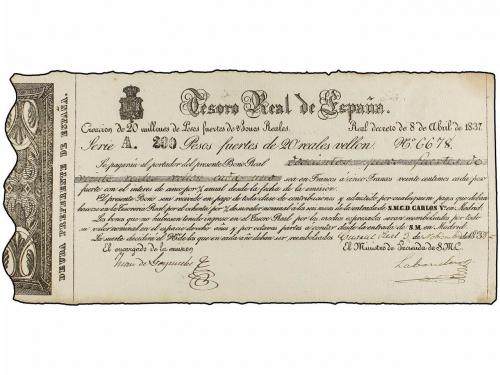 DEUDA PREFERENTE DE ESPAÑA.
Tesoro Real de España.
Creacion de 20 millones de Pesos fuertes de Bonos Reales. Real decreto de 8 de Abril de 1837.
Serie A. 200 Pesos fuertes de 20 reales vellon. No. 6678.
Se pagarán al portador del presente Bono Real
sea en Francos á cinco Francos veinte centimos cada peso
fuerte con el interes de cinco por % anual desde la fecha de la emision.
El presente Bono será recibido en pago de toda clase de contribuciones y admitido por cualesquiera pago que deban
hacerse en la tesoreria Real por el ochenta por % de su valor nominal a los seis meses de la entrada de S.M.C.D. CARLOS Vo. en Madrid.
Los bonos que no hubiesen tenido ingreso en el Tesoro Real por los medios espresados seran reembolsados por todo
su valor nominal en el espacio de ocho años y por octavas partes á contar desde la entrada de S.M. en Madrid.
La suerte decidirá el que en cada año deban ser reembolsados. 183
El encargado de la emision El Ministro de Hacienda de S.M.C.
Labandero